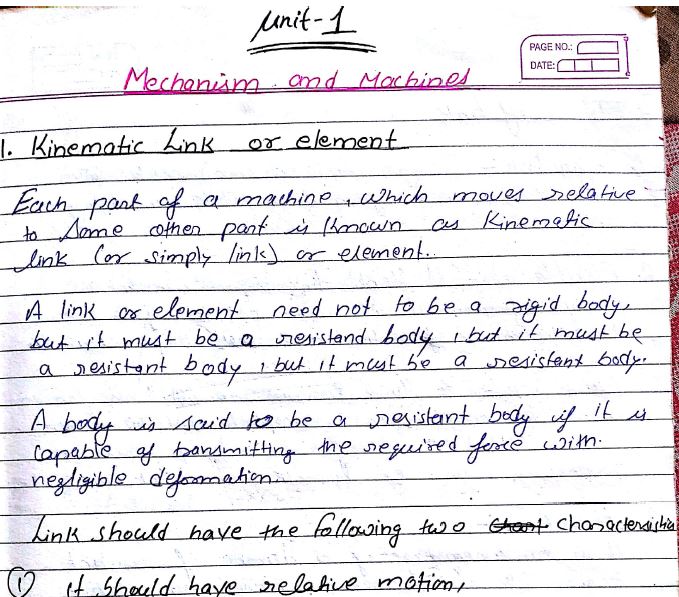 Unit-1
PAGE NO.:
DATE:
Mechanism and Machines
1. Kinematic Link or element
Each part of a machine, which moves relative
to some other part is known as Kinematic
link (or simply link) or element..
A link or element need not to be a rigid body,
but it must be a resistand body, but it must be
a resistant body, but it must be a resistant body.
A body is said to be a resistant body if it is
capable of transmitting the required force with.
negligible deformation.
Link should have the following two Charactersistic
① it should have relative motion,